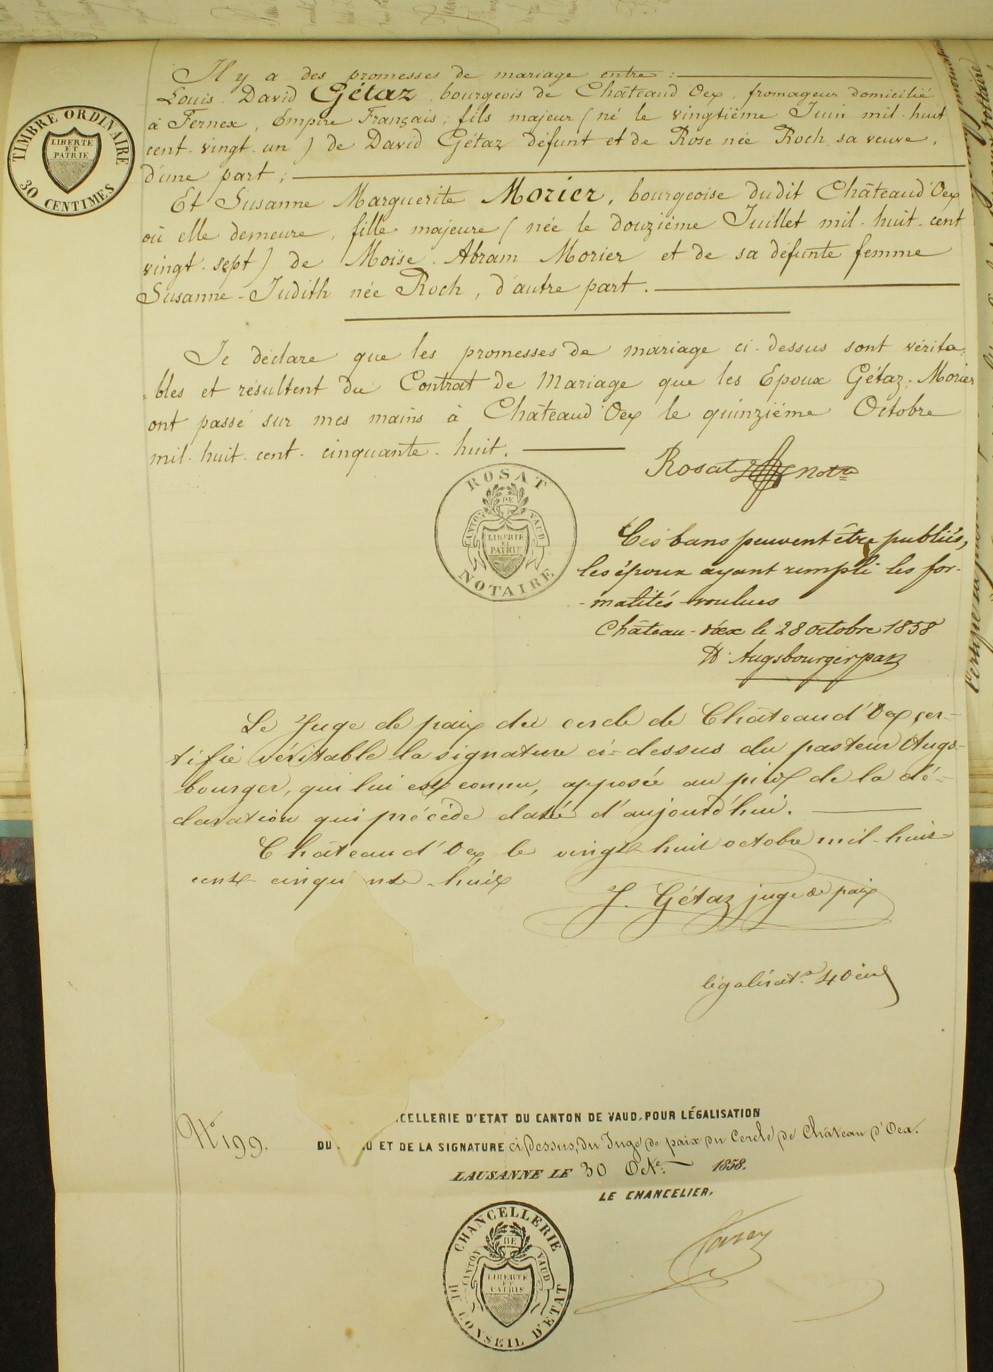 TIMBRE ORDINAIRE
LIBERTE
ET
PATRIE
30 CENTIMES
Il y a des promesses de mariage entre :
Louis David Gétaz, bourgeois de Château d'Oex, fromageur domicilié
à Fernex, Empire Français, fils majeur (né le vingtième Juin mil huit
cent vingt un) de David Gétaz défunt et de Rose née Roch sa veuve,
d'une part ;
Et Susanne Marguerite Morier, bourgeoise dudit Château d'Oex
où elle demeure, fille majeure (née le Douzième Juillet mil huit cent
vingt sept) de Moïse Abram Morier et de sa défunte femme
Susanne-Judith née Roch, d'autre part.
Je déclare que les promesses de mariage ci-dessus sont vérita-
bles et résultent du Contrat de Mariage que les Epoux Gétaz-Morier
ont passé sur mes mains à Château d'Oex le quinzième Octobre
mil huit cent cinquante huit.
Rosat notre
ROSAT
CANTON DE VAUD
LIBERTE
ET
PATRIE
NOTAIRE
Ces bans peuvent être publiés,
les époux ayant rempli les for-
-malités voulues
Château-d'oex le 28 octobre 1858
D. Augsbourger pas
Le Juge de paix du cercle de Château d'Oex, cer-
tifie véritable la signature ci-dessus du pasteur Augs-
bourger, qui lui est connu, apposée au pied de la dé-
claration qui précède daté d'aujourd'hui.
Château d'Oex le vingt huit octobre mil-huit
cent cinquante-huit
J. Gétaz juge de paix
légalisat.
No 199.
CELLERIE D'ETAT DU CANTON DE VAUD, POUR LÉGALISATION
DU ET DE LA SIGNATURE ci dessus, du Juge de paix du Cercle de Château d'Oex.
LAUSANNE LE 30 Obre 1858.
LE CHANCELIER,
CHANCELLERIE
CANTON DE VAUD
LIBERTE
ET
PATRIE
DU CONSEIL D'ETAT